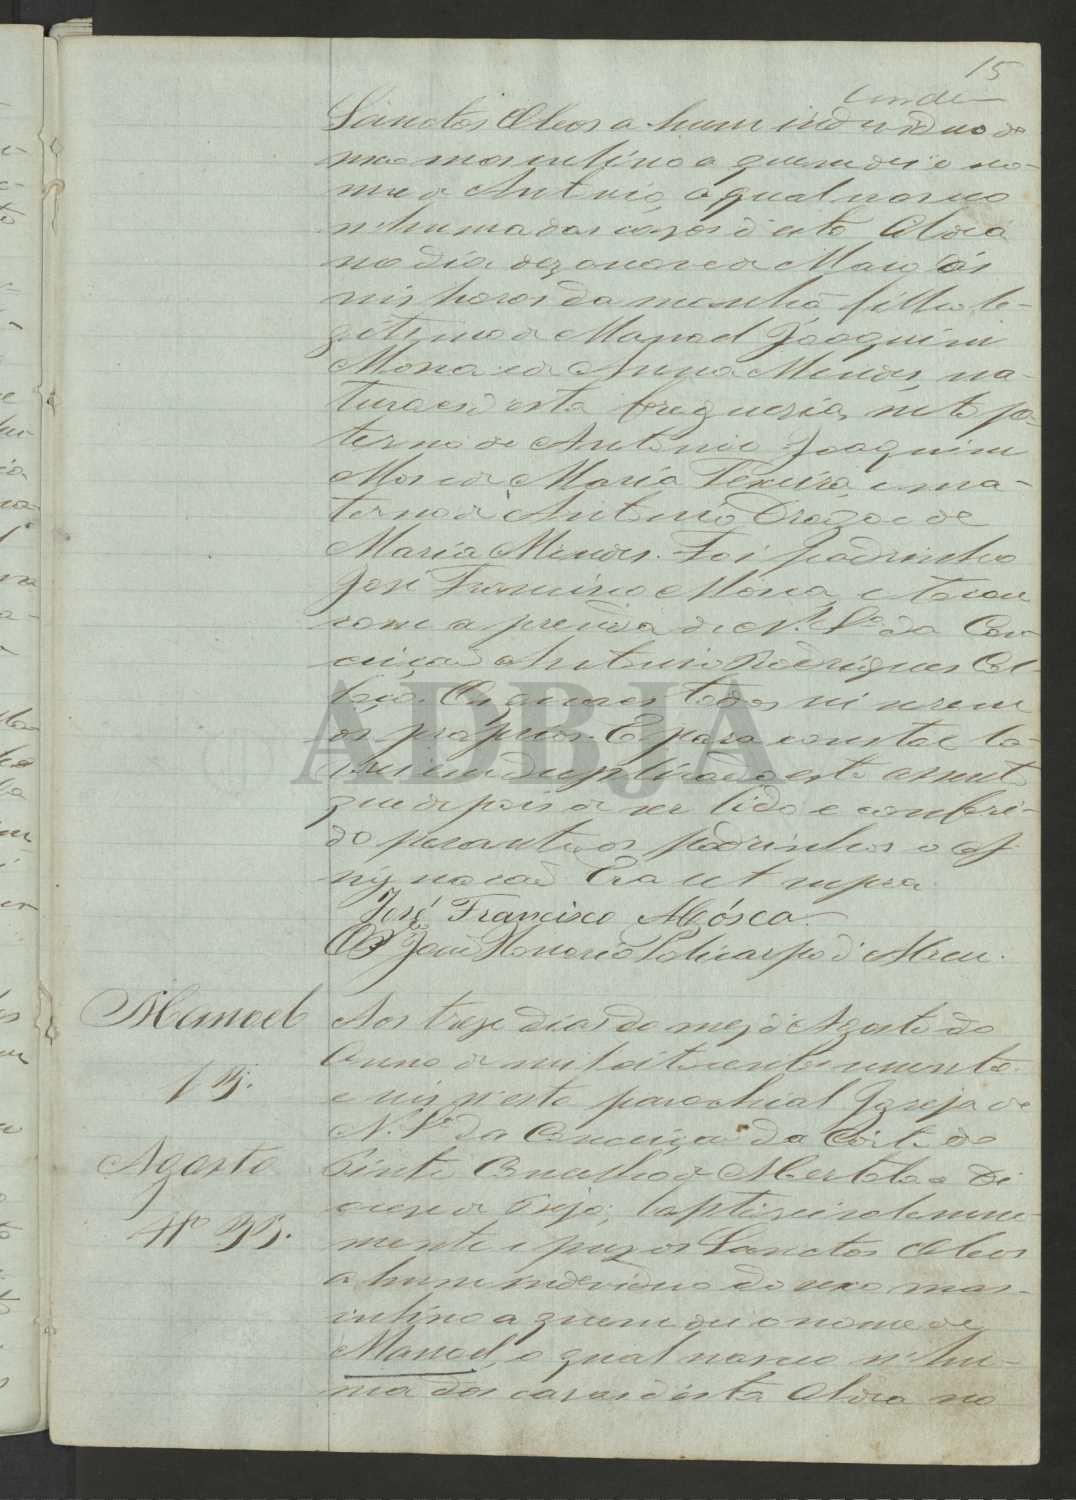 15
Sanctos Oleos a hum individuo do
sexo masculino a quem dei o no-
me de Antonio, o qual nasceo
n'huma das casas d'esta Aldea
no dia dezanove de Maio ás
seis horas da manhã, filho le-
gitimo de Manoel Joaquim
Mosca e de Anna Mendes, na-
turaes d'esta freguesia, neto pa-
terno de Antonio Joaquim
Mosca e Maria Teixeira, e ma-
terno de Antonio Drago e de
Maria Mendes. Foi padrinho
José Francisco Mosca, e tocou
com a prenda de N. Sra da Con-
ceição Antonio Rodrigues
Os quaes todos sei serem
os proprios. E para constar la-
vrei em duplicado este assento
que depois de ser lido e conferi-
do perante os padrinhos o as-
signo Era ut supra.
José Francisco Mósca
O Pe João Honorio Policarpo d'Abreu.
Manoel
13.
Agosto
Nº 33.
Aos treze dias do mez d'Agosto do
Anno de mil oito centos noventa
e seis n'esta parochial Igreja de
N. Sra da Conceição da Corte do
Pinto Concelho de Mertola e Di
ocese de Beja, baptizei solemne-
mente e puz os Sanctos Oleos
a hum individuo do sexo mas-
culino a quem dei o nome de
Manoel, o qual nasceo n'hu-
ma das casas d'esta Aldea no
ADBJA